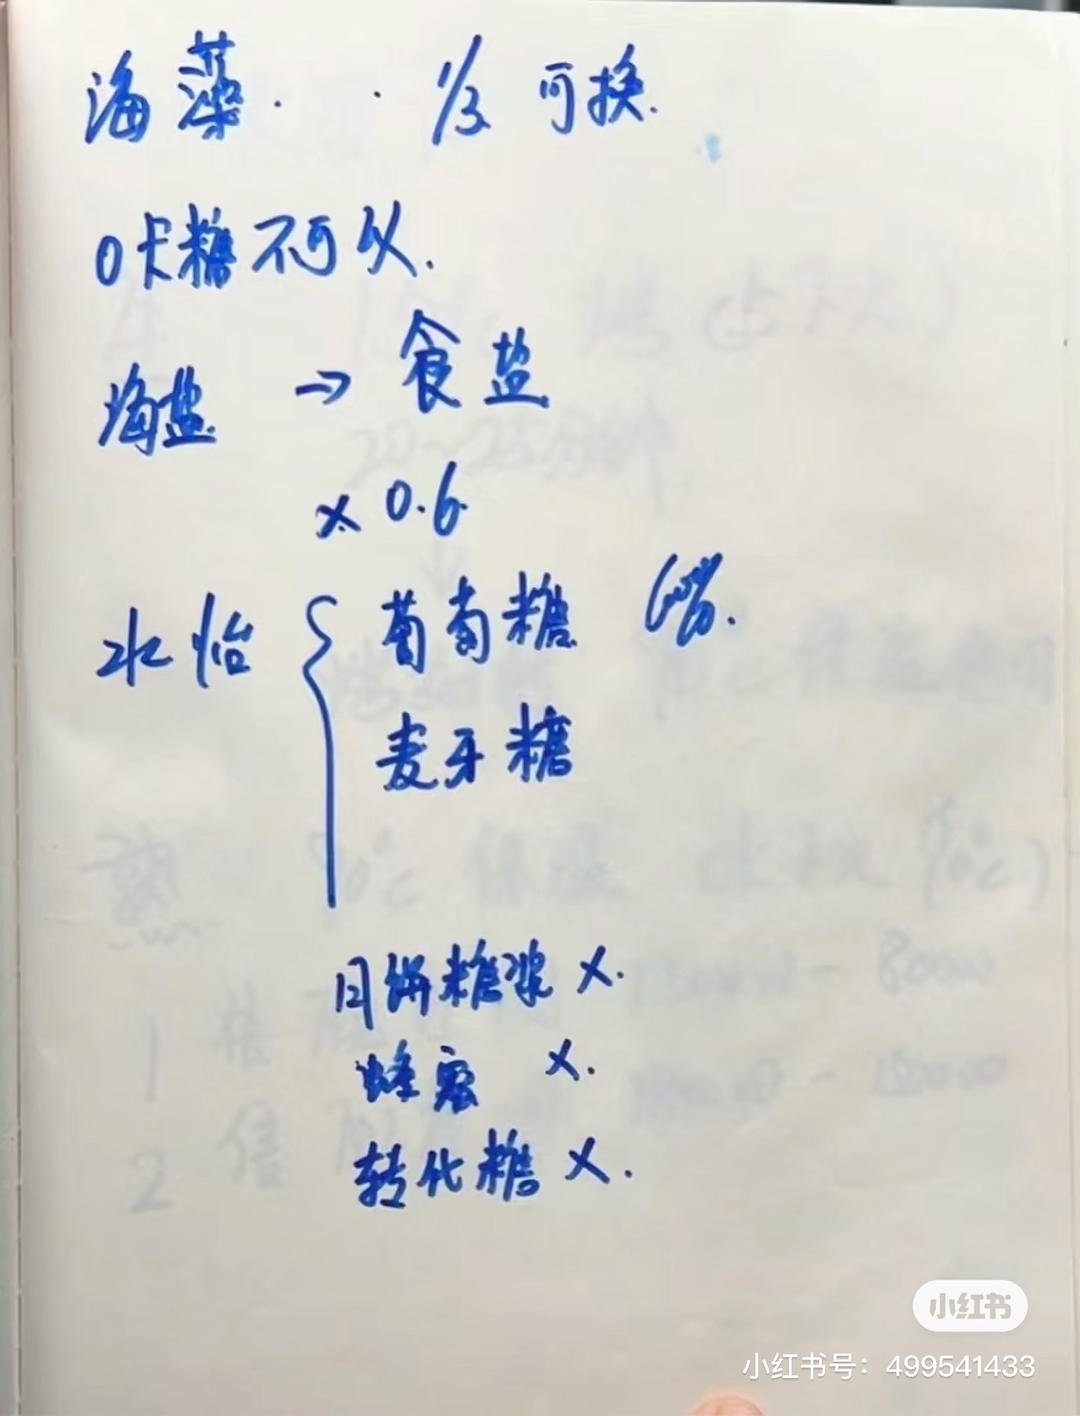 海藻. . 1/3 可换.
0卡糖不可以.
海盐 → 食盐
× 0.6
水怡 { 葡萄糖
麦芽糖
月饼糖浆 ×.
蜂蜜 ×.
转化糖 ×.
小红书
小红书号：499541433